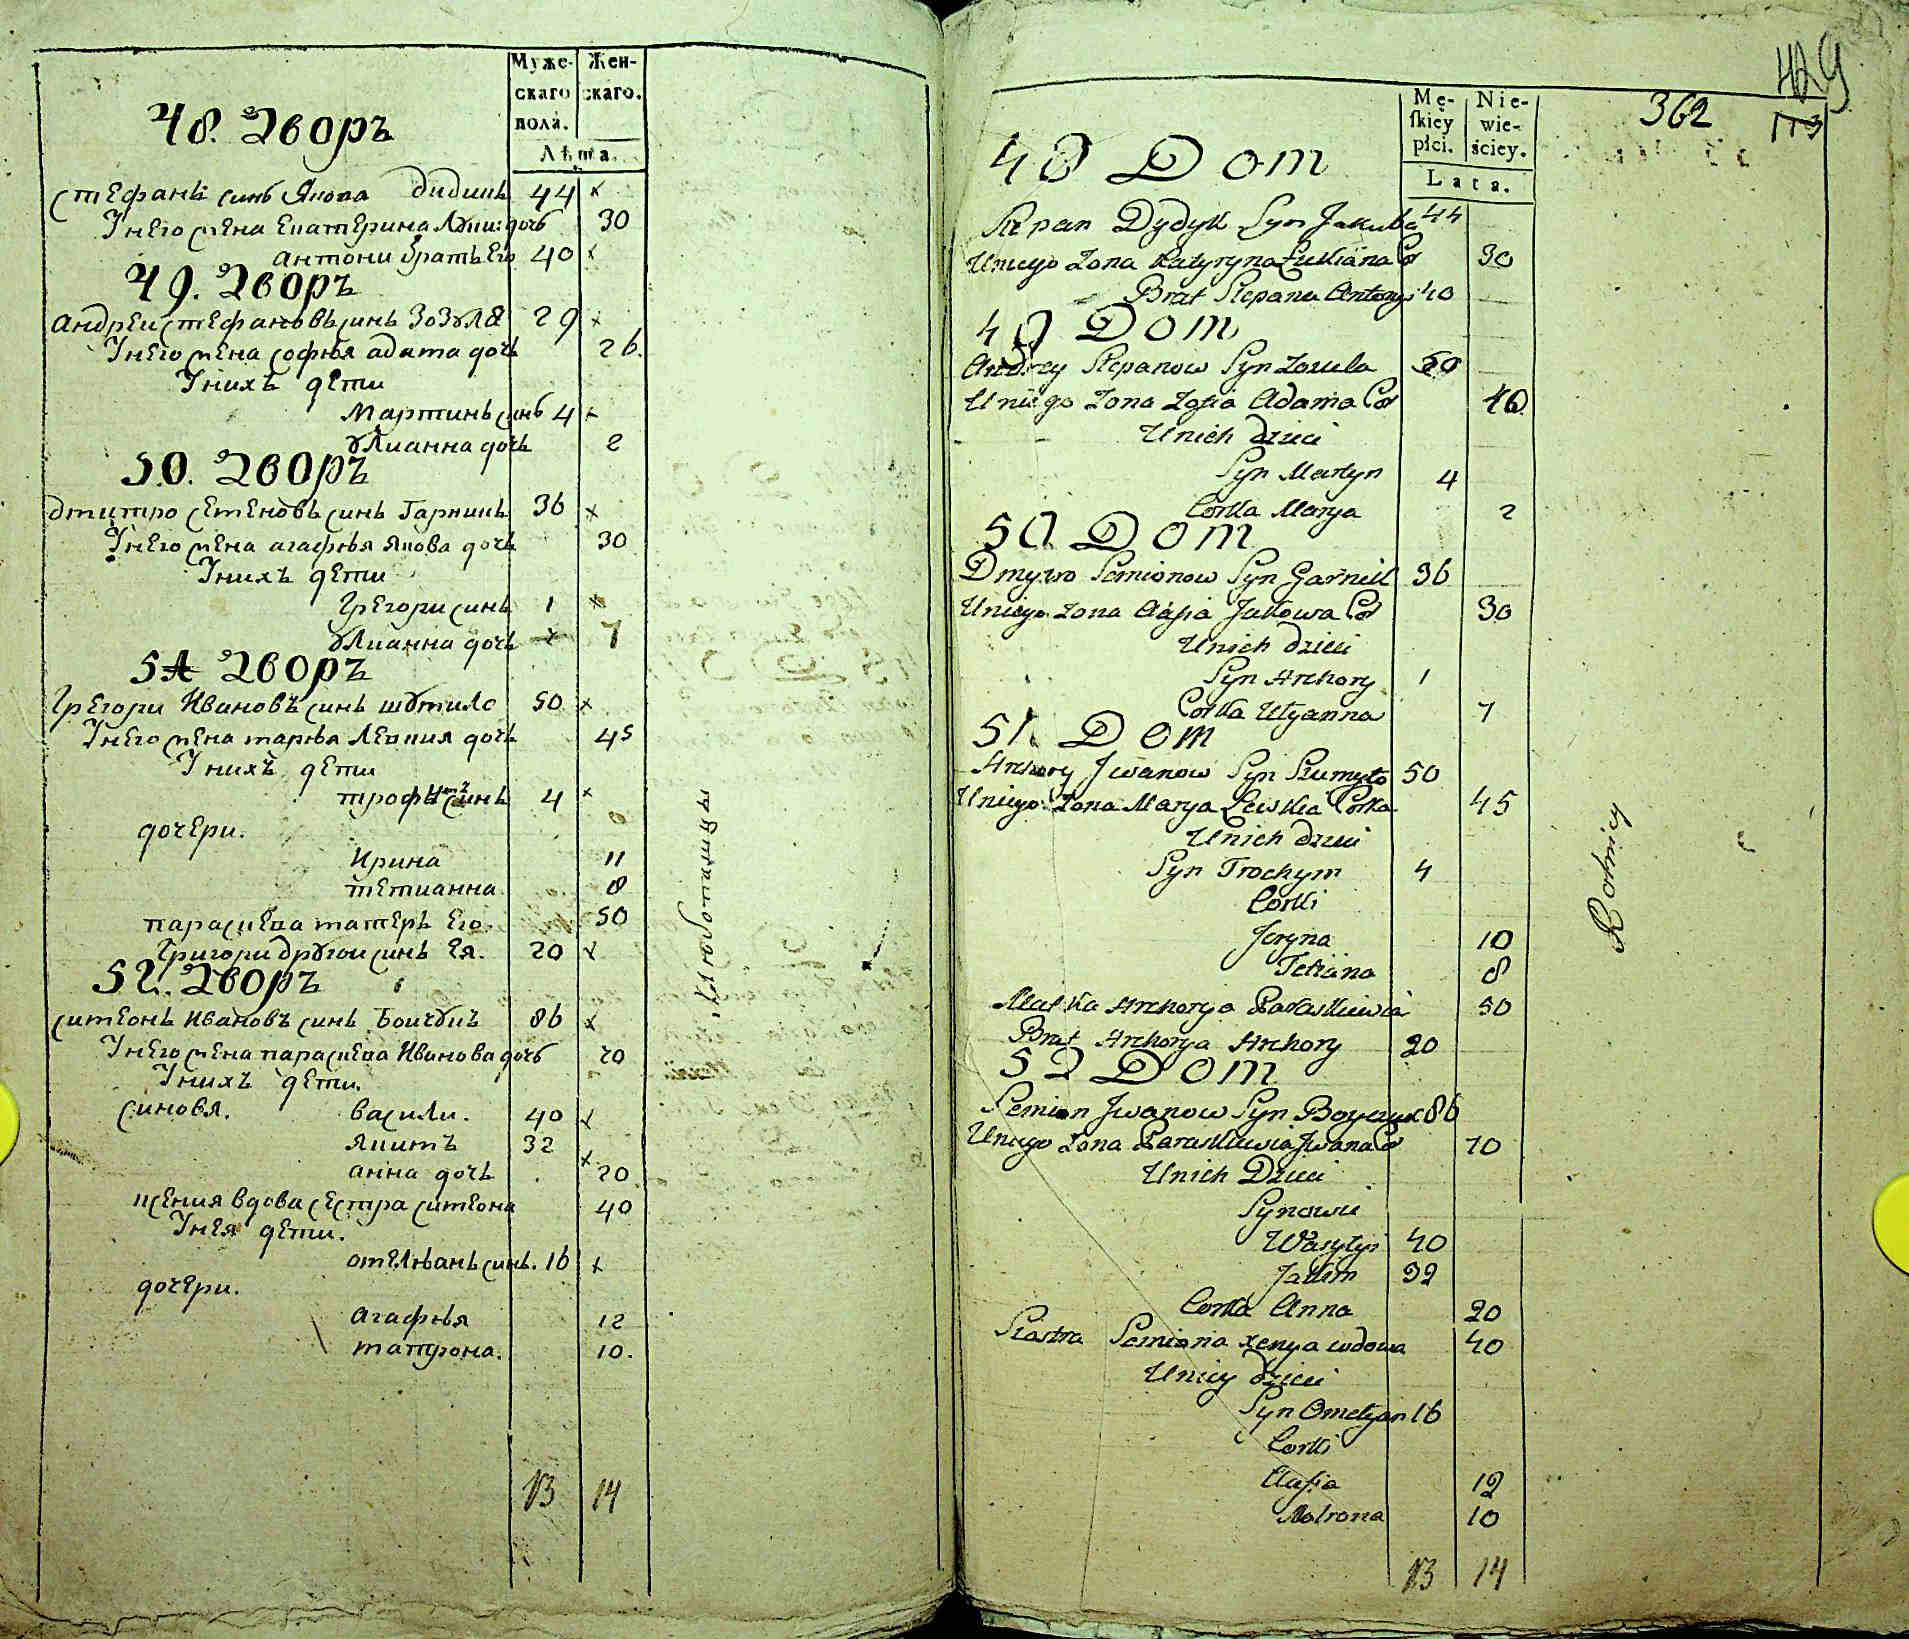 Муже-
скаго
пола.
Жен-
скаго.
Лѣта.
48. Дворъ
Стефанъ синъ Якова Дидикъ 44
Унего жена Екатерина Лукии дочь 30
Антони братъ Его 40
49. Дворъ
Андреи Стефановъ синъ Зозуля 29
Унего жена Софѣя Адама дочь 26.
Унихъ дети
Мартинъ синъ 4
Улианна дочь 2
50. Дворъ
Дмитро Семеновъ синъ Гарникъ 36
Унего жена Агафѣя Якова дочь 30
Унихъ дети
Грегори синъ 1
Улианна дочь 7
51 Дворъ
Грегори Ивановъ синъ Шумило 50
Унего жена Марѣя Левкия дочь 45
Унихъ дети
Трофимъ синъ 4
дочери.
Ирина 11
Тетианна 8
Параскева матерь Его. 50
Григори другои синъ Ея. 20
52. Дворъ
Симеонъ Ивановъ синъ Боичукъ 86
Унего жена Параскева Иванова дочь 70
Унихъ дети.
Синовя. Васили. 40
Якимъ 32
Анна дочь 20
Ксения вдова сестра Симеона 40
Унея дети.
Омелѣанъ синъ. 16
дочери.
Агафѣя 12
Матрона. 10.
13 14
Хлеборобники
362
429
113
Mę-
skiey
płci.
Nie-
wie-
ściey.
Lata.
48 Dom
Stepan Dydyk Syn Jakuba 44
Uniego Zona Katyryna Lukiana Cor 30
Brat Stepana Antony 40
49 Dom
Andrey Stepanow Syn Zozula
Uniego Zona Zofia Adama Cor
Unich dzieci
Syn Martyn 4
Corka Marya 2
50 Dom
Dmytro Semionow Syn Garnik 36
Uniego Zona Aafia Jakowa Cor 30
Unich dzieci
Syn Hrehory 1
Corka Ulyanna 7
51. Dom
Hrehory Jwanow Syn Szumyło 50
Uniego Zona Marya Lewkia Corka 45
Unich dzieci
Syn Trochym 4
Corki
Jeryna 10
Tetiana 8
Matka Hrehorya Paraskiewia 50
Brat Hrehorya Hrehory 20
52 Dom
Semion Jwanow Syn Boyczuk 86
Uniego Zona Paraskiewia Jwana Cor 70
Unich Dzieci
Synowie
Wasylyi 40
Jakim 32
Corka Anna 20
Siostra Semiona Xenya wdowa 40
Uniey dzieci
Syn Omelyan 16
Corki
Aafia 12
Motrona 10
13 14
Rolnicy